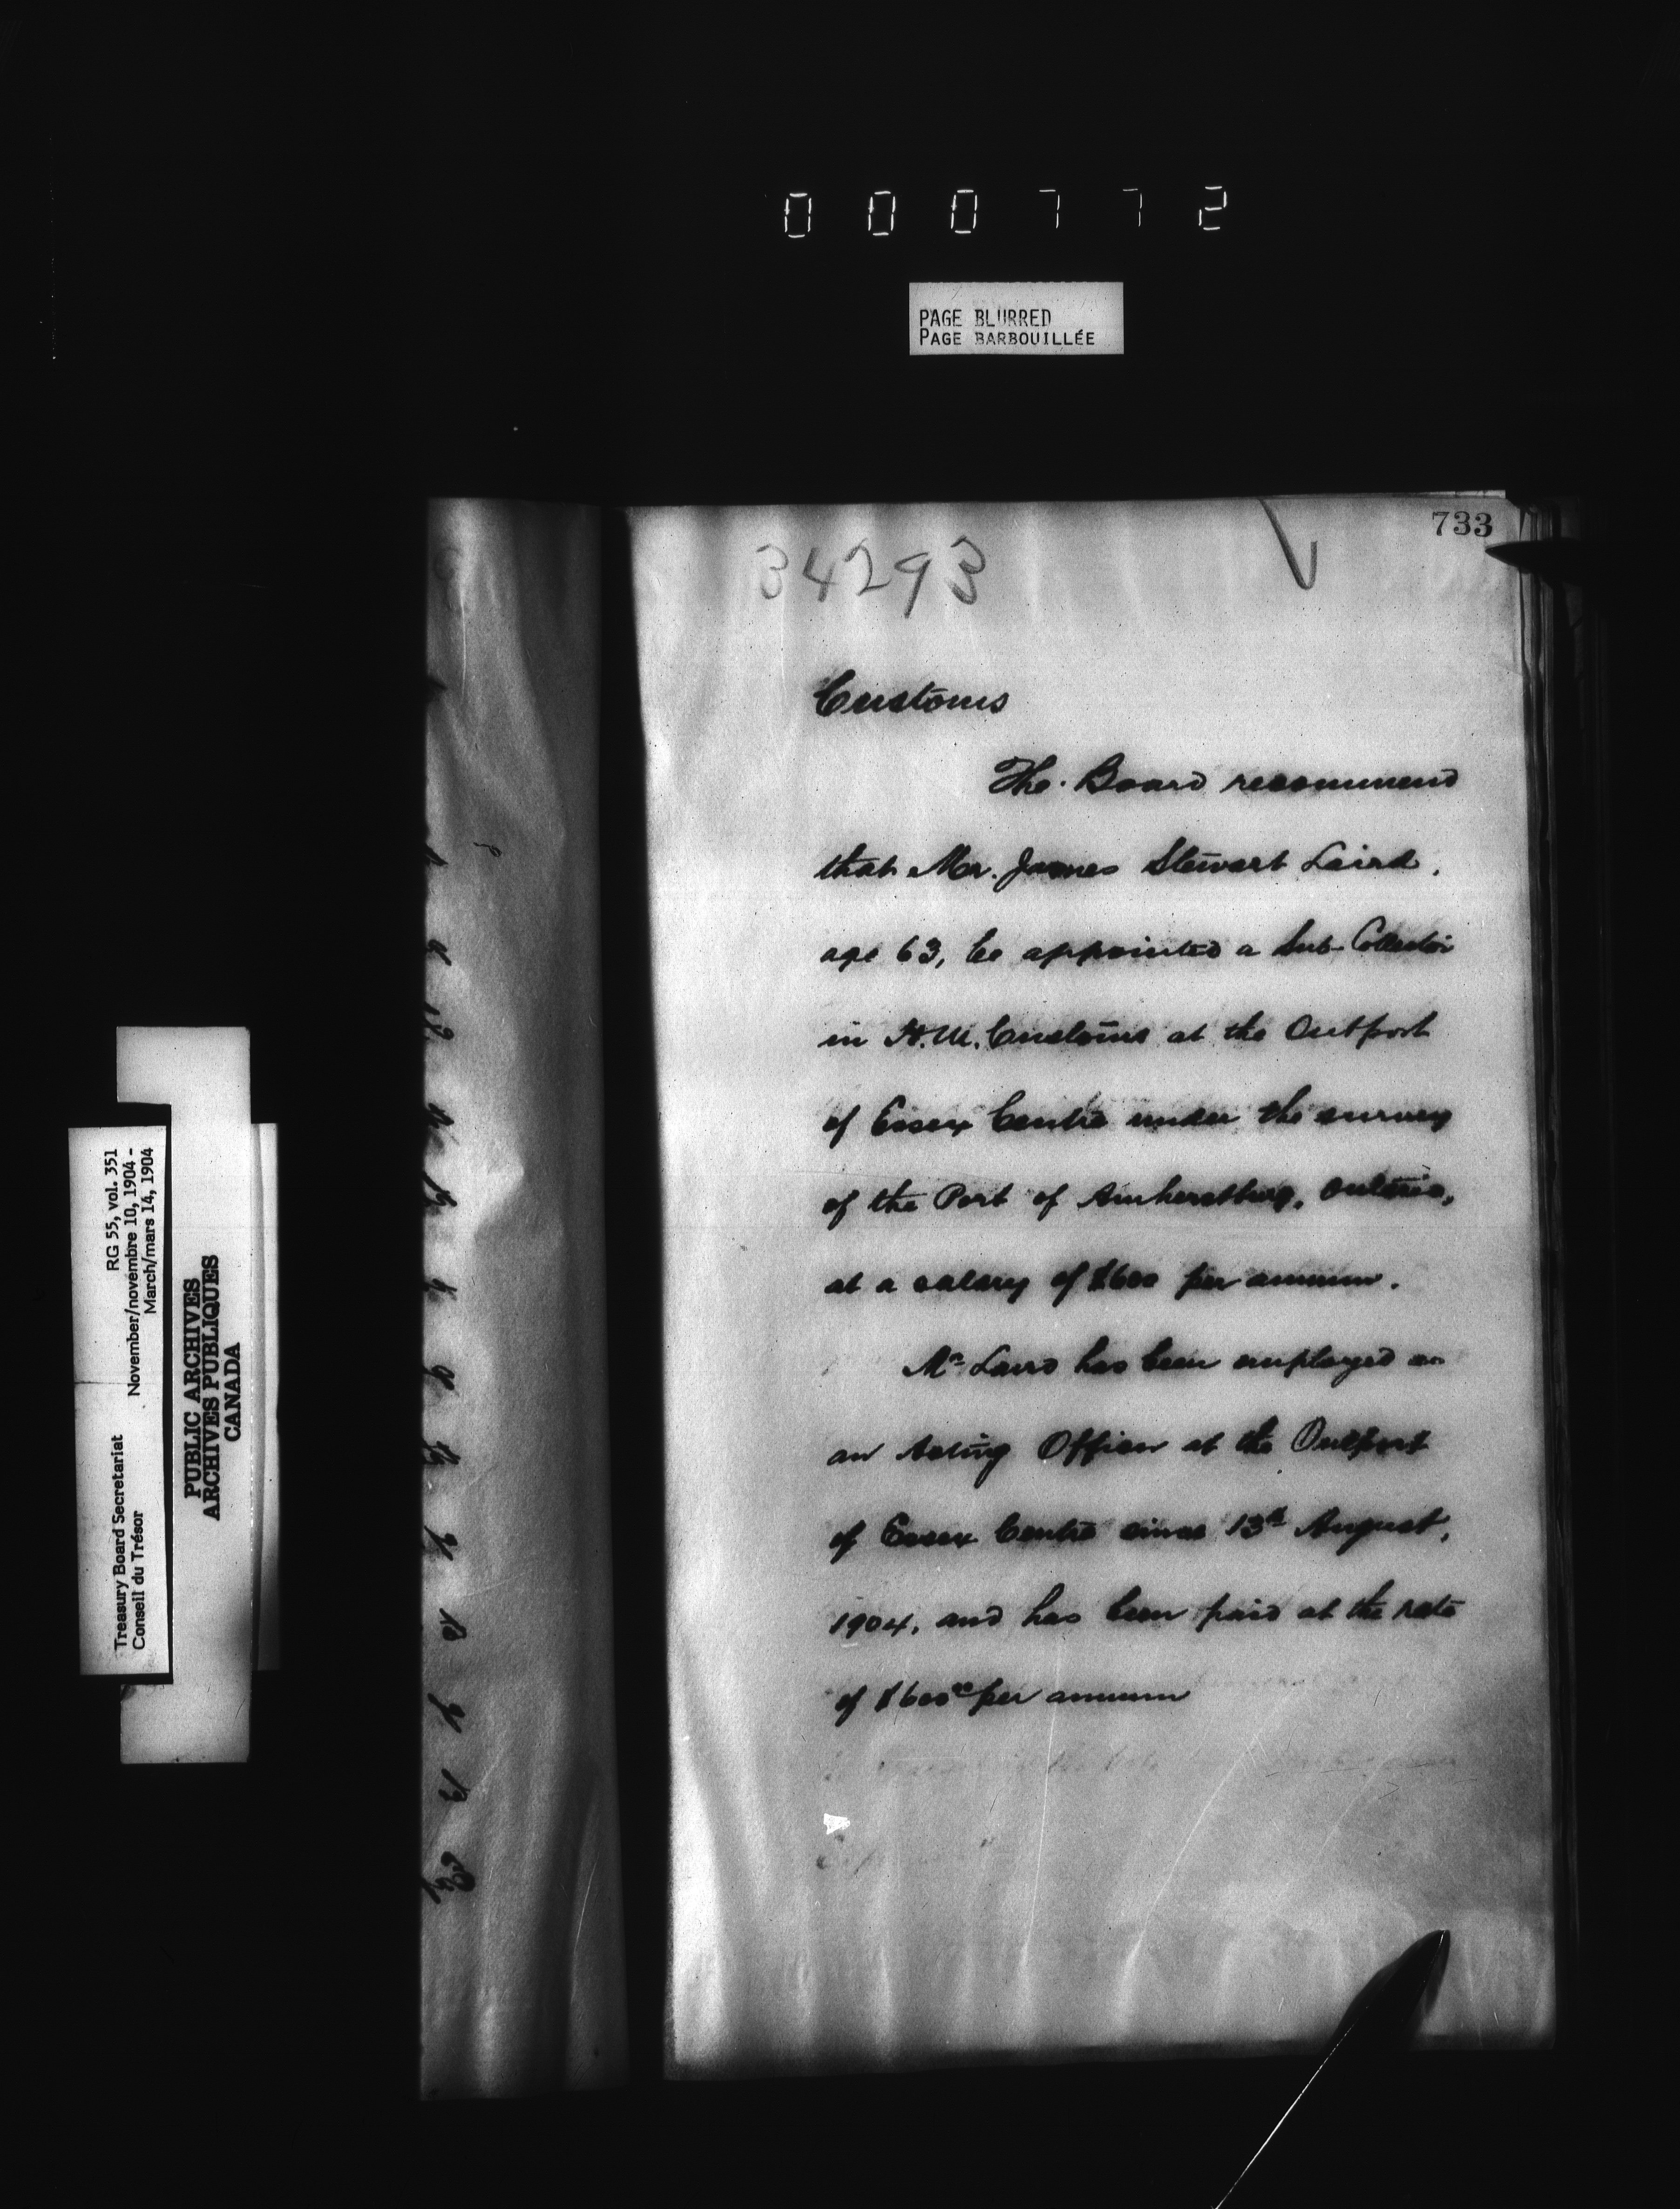 000772
PAGE BLURRED
PAGE BARBOUILLÉE
733
34293
Customs
The Board recommend
that Mr. James Stewart Laird,
age 63, be appointed a Sub-Collector
in H.M. Customs at the Outport
of Essex Centre under the survey
of the Port of Amherstburg, Ontario,
at a salary of $600 per annum.
Mr Laird has been employed as
an Acting Officer at the Outport
of Essex Centre since 13th August,
1904, and has been paid at the rate
of $600 00 per annum
Treasury Board Secretariat RG 55, vol. 351
Conseil du Trésor November/novembre 10, 1904 -
March/mars 14, 1904
PUBLIC ARCHIVES
ARCHIVES PUBLIQUES
CANADA